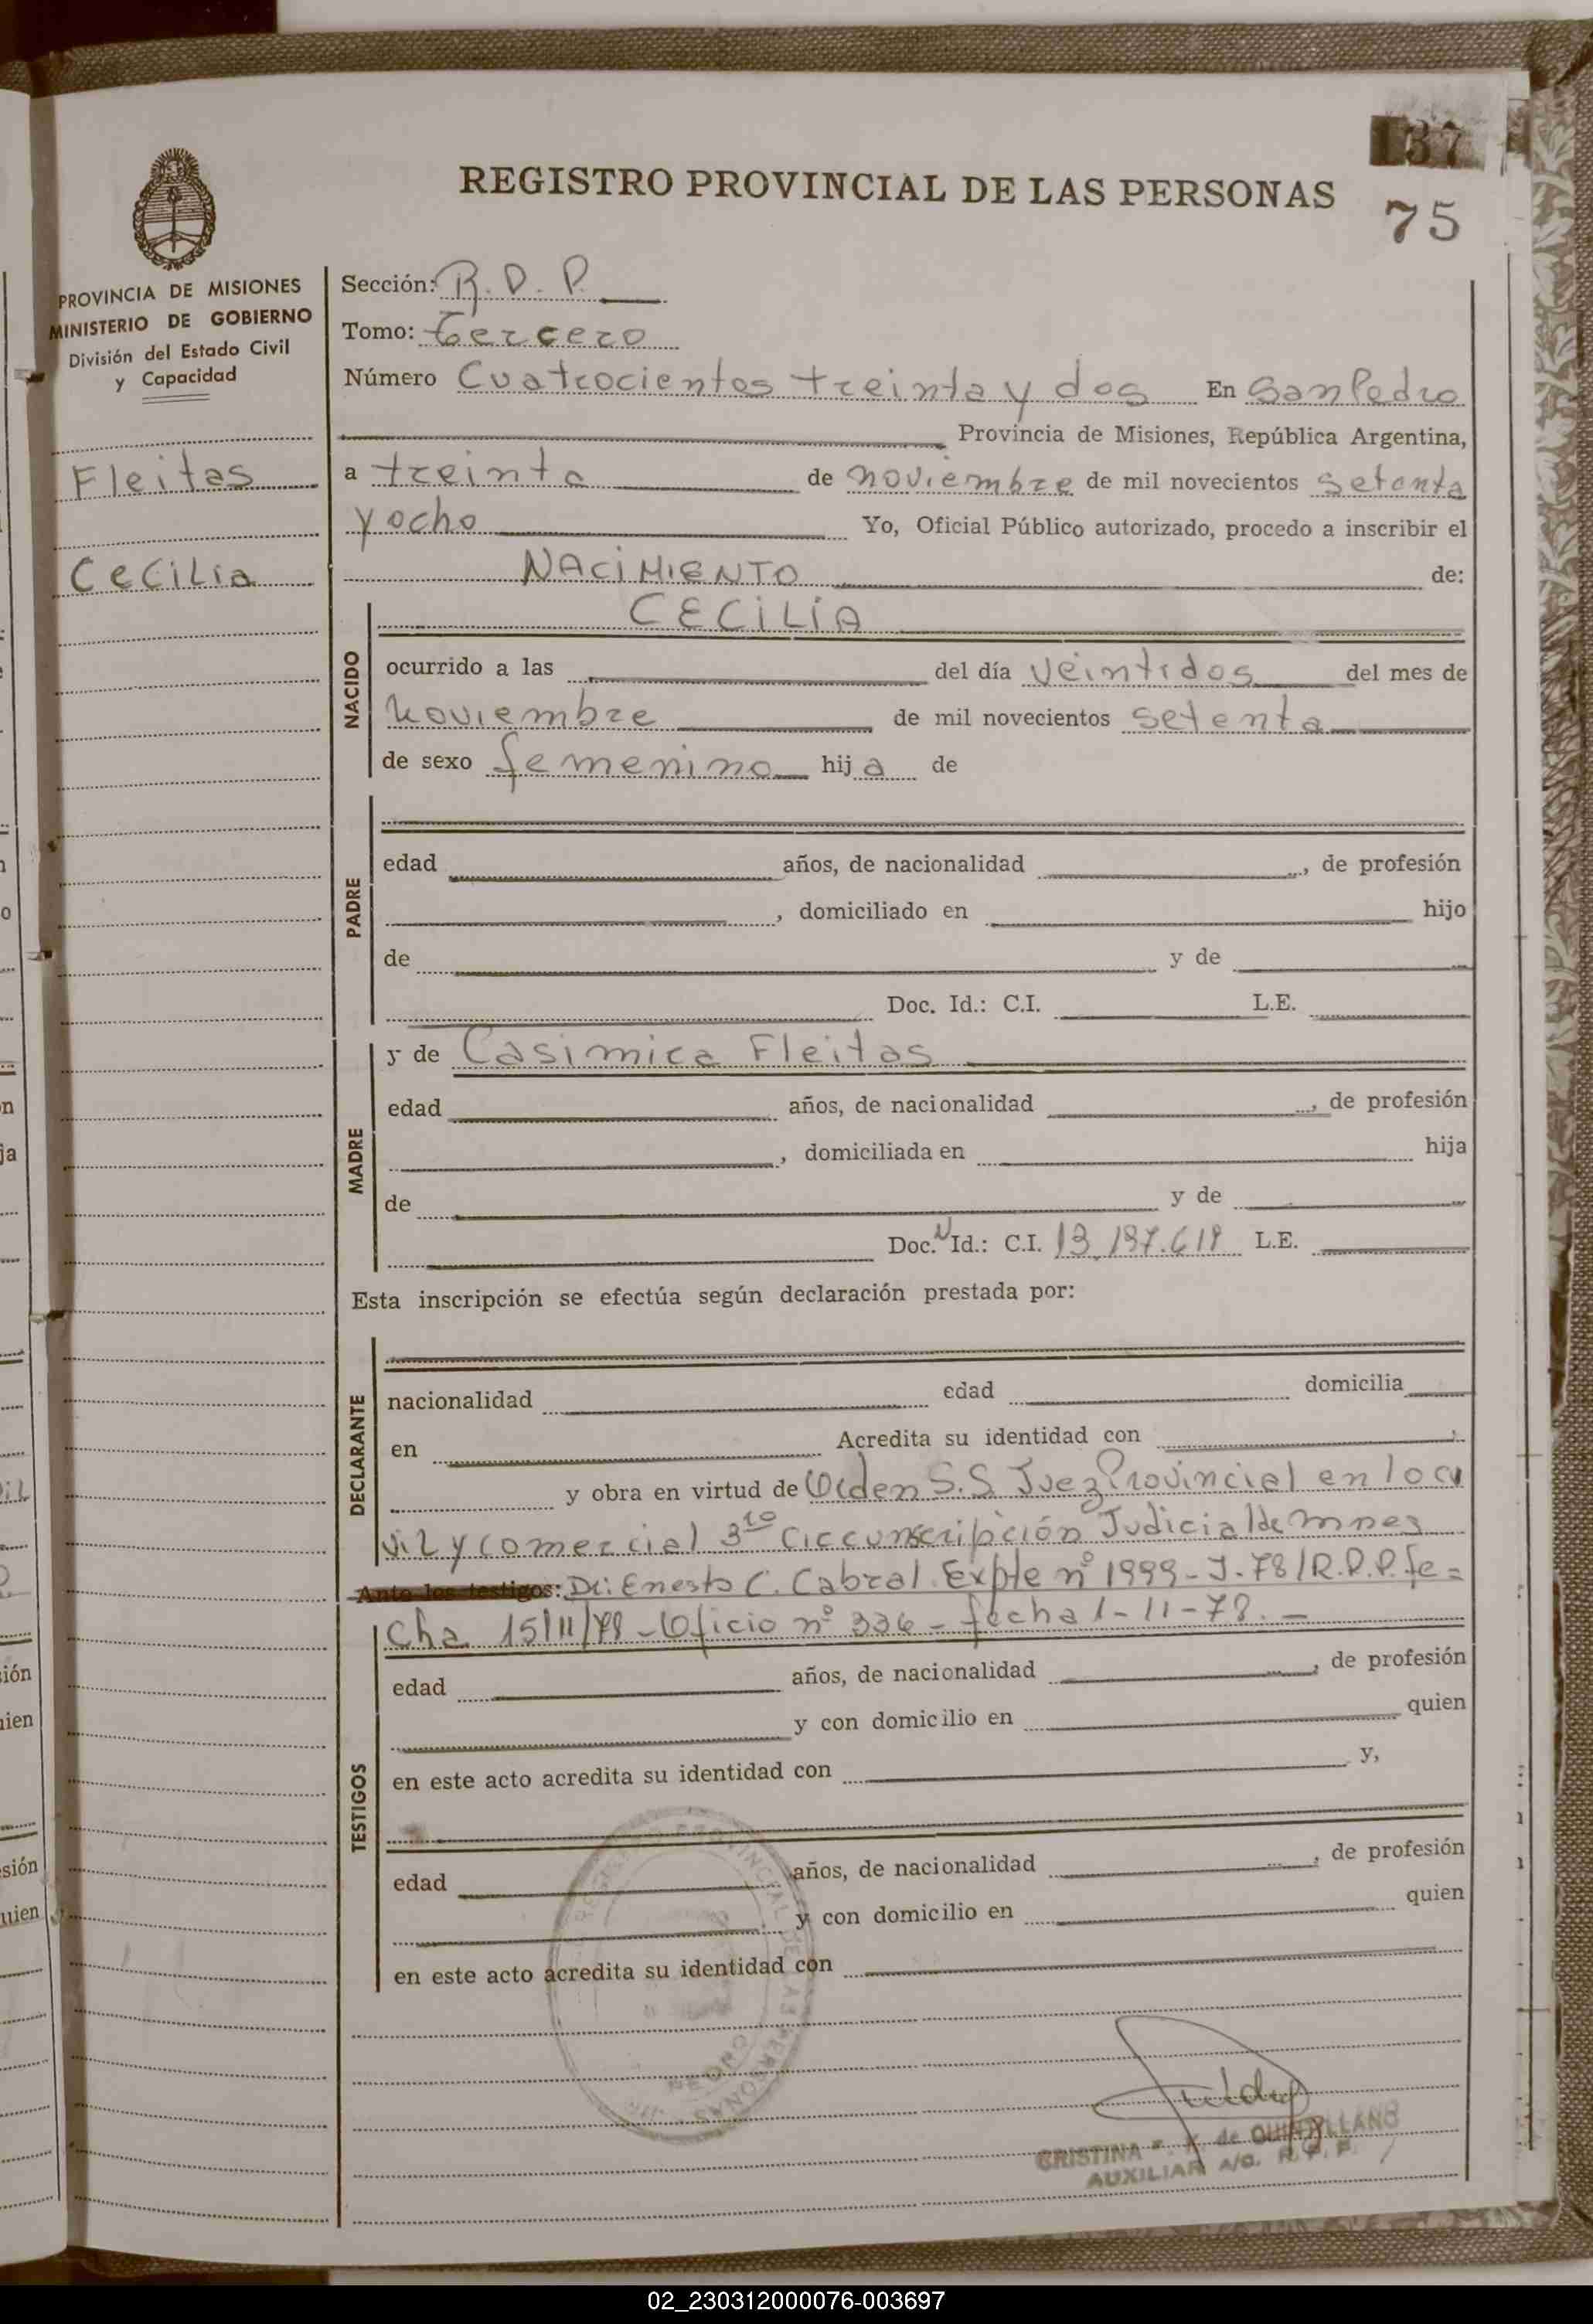 137
75
REGISTRO PROVINCIAL DE LAS PERSONAS
PROVINCIA DE MISIONES
MINISTERIO DE GOBIERNO
División del Estado Civil
y Capacidad
Fleitas
Cecilia
Sección: R.D.P.
Tomo: Tercero
Número Cuatrocientos treinta y dos En San Pedro
Provincia de Misiones, República Argentina,
a treinta de noviembre de mil novecientos setenta
y ocho Yo, Oficial Público autorizado, procedo a inscribir el
NACIMIENTO de:
NACIDO
CECILIA
ocurrido a las del día veintidos del mes de
noviembre de mil novecientos setenta
de sexo femenino hij a de
PADRE
edad años, de nacionalidad , de profesión
, domiciliado en hijo
de y de
Doc. Id.: C.I. L.E.
MADRE
y de Casimira Fleitas
edad años, de nacionalidad , de profesión
, domiciliada en hija
de y de
Doc. N Id.: C.I. 13.197.619 L.E.
Esta inscripción se efectúa según declaración prestada por:
DECLARANTE
nacionalidad edad domicilia
en Acredita su identidad con
y obra en virtud de Orden S.S Juez Provincial en lo ci
vil y comercial 3ra Circunscripción Judicial de mnes
Ante los testigos: Dr. Enesto C. Cabral. Expte nº 1999-J-78/R.P.P. fe=
cha 15/11/78 - Oficio nº 336 - fecha 1-11-78.-
TESTIGOS
edad años, de nacionalidad , de profesión
y con domicilio en quien
en este acto acredita su identidad con y,
edad años, de nacionalidad , de profesión
y con domicilio en quien
en este acto acredita su identidad con
PROVINCIAL DE LAS PERSONAS
PEDRO
CRISTINA de QUINTILLANO
AUXILIAR A/C. R.P.P.
02_230312000076-003697